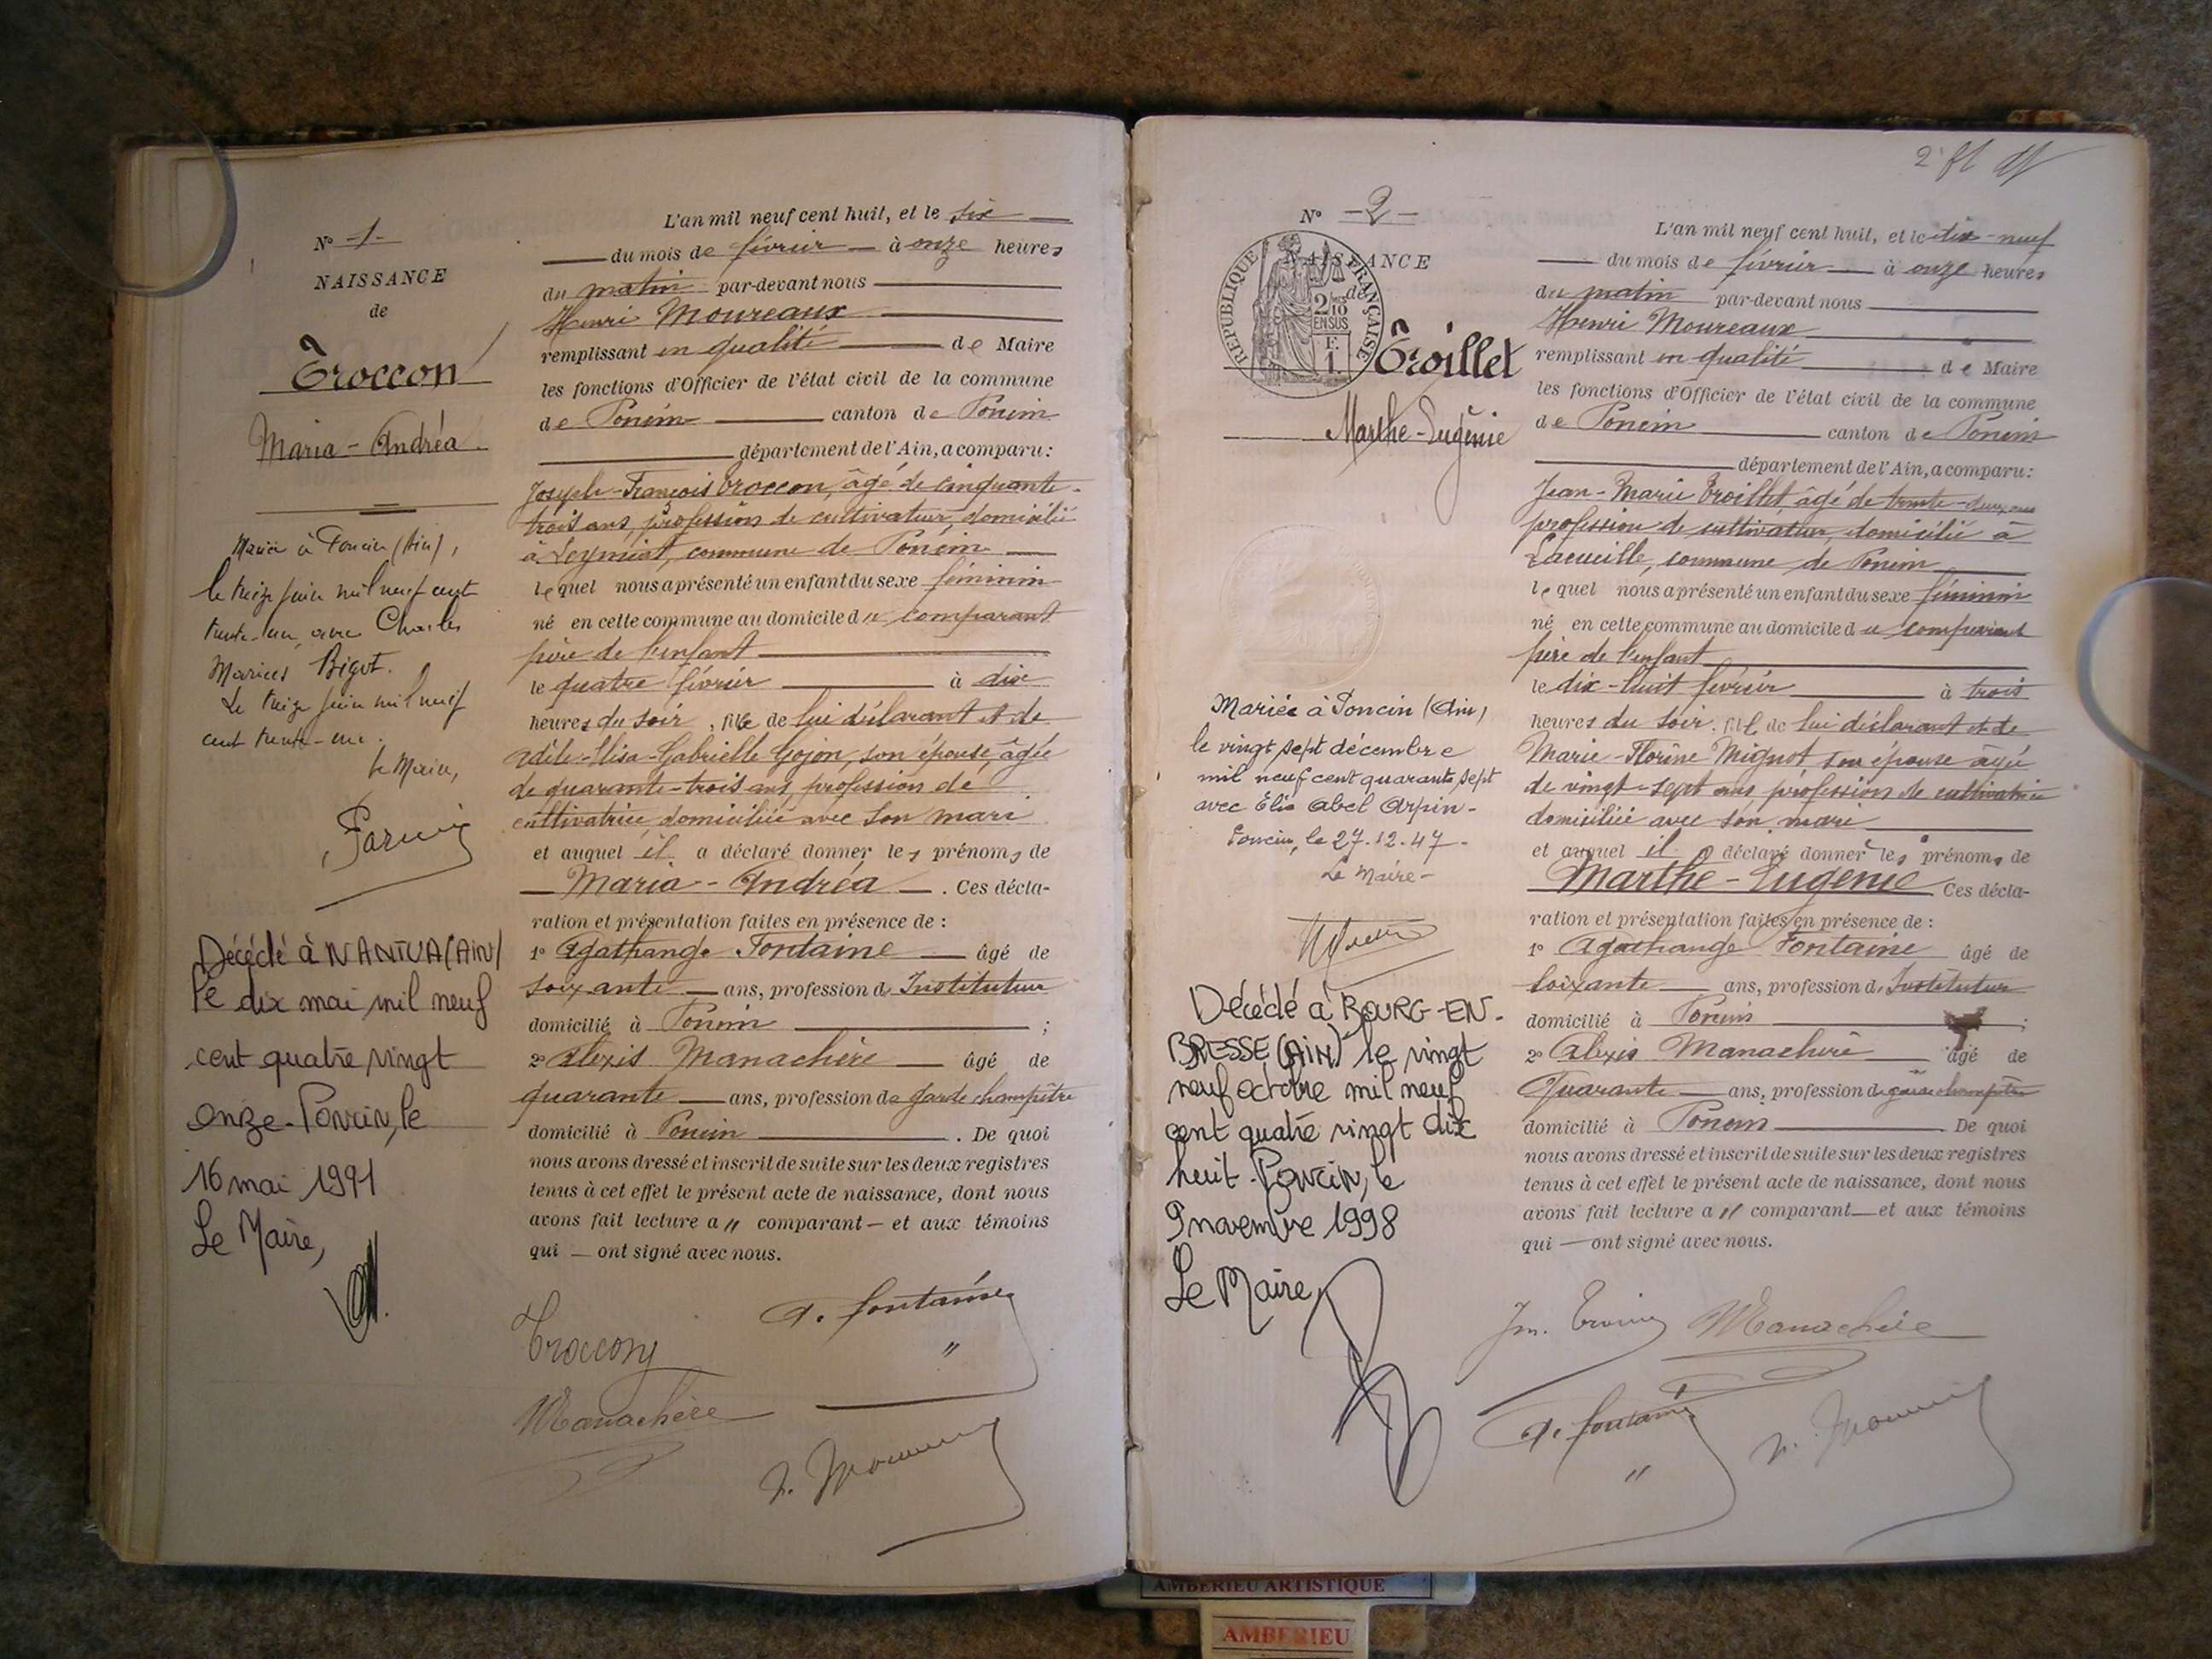 N° -1-
NAISSANCE
de
Troccon
Maria - Andréa
Mariée à Poncin (Ain),
le treize juin mil neuf cent
trente-un, avec Charles
Marius Bigot.
Le treize juin mil neuf
cent trente-un.
Le Maire,
Décédé à NANTUA (AIN)
le dix mai mil neuf
cent quatre vingt
onze - Poncin, le
16 mai 1991
Le Maire,
L'an mil neuf cent huit, et le six
du mois de février à onze heures
du matin par-devant nous
Henri Moureaux
remplissant en qualité de Maire
les fonctions d'Officier de l'état civil de la commune
de Poncin canton de Poncin
département de l'Ain, a comparu:
Joseph-François Troccon, âgé de cinquante-
trois ans, profession de cultivateur, domicilié
à Leymiat, commune de Poncin
lequel nous a présenté un enfant du sexe féminin
né en cette commune au domicile du comparant
père de l'enfant
le quatre février à dix
heures du soir, fille de lui déclarant et de
Adèle-Elisa-Gabrielle Gojon, son épouse, âgée
de quarante-trois ans, profession de
cultivatrice, domiciliée avec son mari
et auquel il a déclaré donner les prénoms de
Maria - Andréa. Ces décla-
ration et présentation faites en présence de :
1° Agathange Fontaine âgé de
soixante ans, profession d'Instituteur
domicilié à Poncin ;
2° Alexis Manachère âgé de
quarante ans, profession de garde champêtre
domicilié à Poncin. De quoi
nous avons dressé et inscrit de suite sur les deux registres
tenus à cet effet le présent acte de naissance, dont nous
avons fait lecture a // comparant — et aux témoins
qui — ont signé avec nous.
A. fontaine
Troccon
"
Manachère
2 fl
N° -2-
NAISSANCE
de
RÉPUBLIQUE FRANÇAISE
2/10
EN SUS
F.
1.
Troillet
Marthe-Eugénie
Mariée à Poncin (Ain)
le vingt sept décembre
mil neuf cent quarante sept
avec Élie Abel Arpin -
Poncin, le 27.12.47.
Le Maire -
Décédé à BOURG-EN-
BRESSE (AIN) le vingt
neuf octobre mil neuf
cent quatre vingt dix
huit - Poncin, le
9 novembre 1998
Le Maire,
L'an mil neuf cent huit, et le dix-neuf
du mois de février à onze heures
du matin par-devant nous
Henri Moureaux
remplissant en qualité de Maire
les fonctions d'Officier de l'état civil de la commune
de Poncin canton de Poncin
département de l'Ain, a comparu:
Jean-Marie Troillet, âgé de trente-deux ans
profession de cultivateur, domicilié à
Lacueille, commune de Poncin
lequel nous a présenté un enfant du sexe féminin
né en cette commune au domicile du comparant
père de l'enfant
le dix-huit février à trois
heures du soir, fille de lui déclarant et de
Marie-Florine Mignot son épouse âgée
de vingt-sept ans, profession de cultivatrice
domiciliée avec son mari
et auquel il a déclaré donner les prénoms de
Marthe-Eugénie Ces décla-
ration et présentation faites en présence de :
1° Agathange Fontaine âgé de
soixante ans, profession d'Instituteur
domicilié à Poncin ;
2° Alexis Manachère âgé de
Quarante ans, profession de garde champêtre
domicilié à Poncin. De quoi
nous avons dressé et inscrit de suite sur les deux registres
tenus à cet effet le présent acte de naissance, dont nous
avons fait lecture a // comparant — et aux témoins
qui — ont signé avec nous.
Manachère
A. fontaine
"
AMBERIEU ARTISTIQUE
AMBERIEU